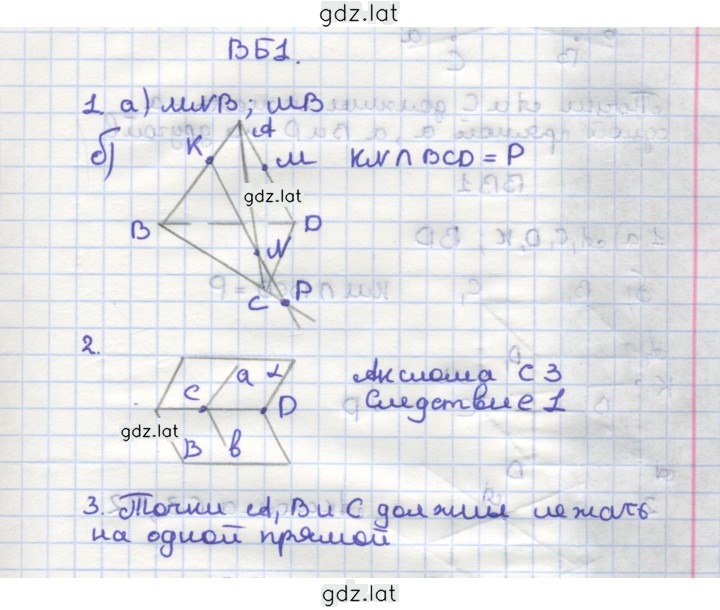 gdz.lat
ВБ1.
1. а) MNB; MB
б) KN ∩ BCD = P
A
K
M
gdz.lat
B
D
N
C
P
2.
a
α
C
D
gdz.lat
B
b
Аксиома C 3
Следствие 1
3. Точки A, B и C должны лежать
на одной прямой
gdz.lat